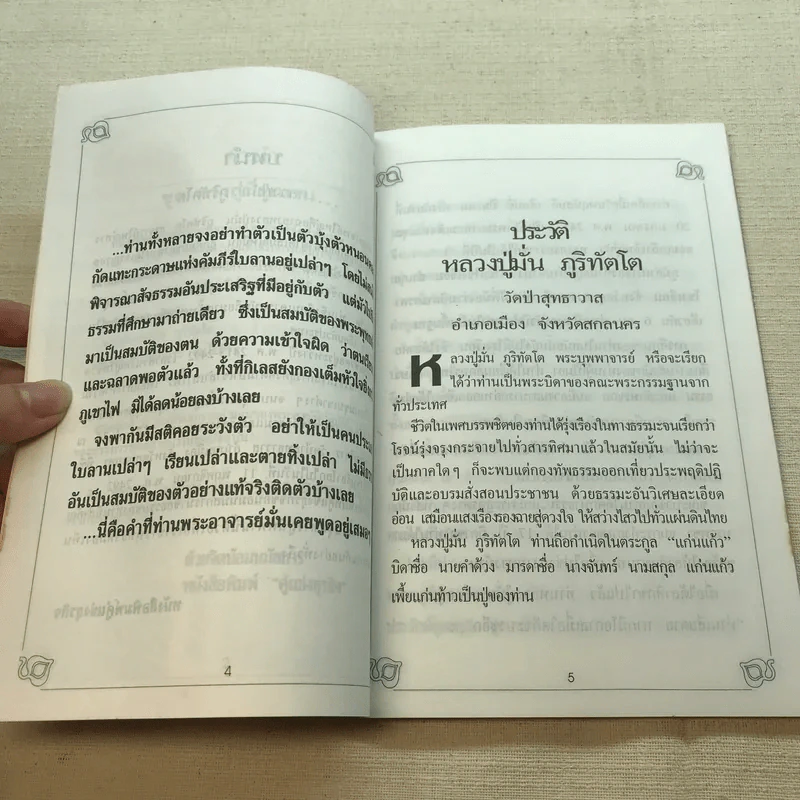 ...ท่านทั้งหลายจงอย่าทำตัวเป็นตัวบุ้งตัวหนอน
กัดแทะกระดาษแห่งคัมภีร์ใบลานอยู่เปล่าๆ
พิจารณาสัจธรรมอันประเสริฐที่มีอยู่กับตัว
ธรรมที่ศึกษามาถ่ายเดียว ซึ่งเป็นสมบัติของ
มาเป็นสมบัติของตน ด้วยความเข้าใจผิด
และฉลาดพอตัวแล้ว ทั้งที่กิเลสยังกองเต็มหัวใจ
ภูเขาไฟ มิได้ลดน้อยลงบ้างเลย
จงพากันมีสติคอยระวังตัว อย่าให้เป็นคน
ใบลานเปล่าๆ เรียนเปล่าและตายทิ้งเปล่า
อันเป็นสมบัติของตัวอย่างแท้จริงติดตัวบ้างเลย
...นี่คือคำที่ท่านพระอาจารย์มั่นเคยพูดอยู่เสมอๆ
4
ประวัติ
หลวงปู่มั่น ภูริทัตโต
วัดป่าสุทธาวาส
อำเภอเมือง จังหวัดสกลนคร
หลวงปู่มั่น ภูริทัตโต พระบุพพาจารย์ หรือจะเรียก
ได้ว่าท่านเป็นพระบิดาของคณะพระกรรมฐานจาก
ทั่วประเทศ
ชีวิตในเพศบรรพชิตของท่านได้รุ่งเรืองในทางธรรมะจนเรียกว่า
โรจน์รุ่งจรุงกระจายไปทั่วสารทิศมาแล้วในสมัยนั้น ไม่ว่าจะ
เป็นภาคใดๆ ก็จะพบแต่กองทัพธรรมออกเที่ยวประพฤติปฏิ
บัติและอบรมสั่งสอนประชาชน ด้วยธรรมะอันวิเศษละเอียด
อ่อน เสมือนแสงเรืองรองฉายสู่ดวงใจ ให้สว่างไสวไปทั่วแผ่นดินไทย
หลวงปู่มั่น ภูริทัตโต ท่านถือกำเนิดในตระกูล "แก่นแก้ว"
บิดาชื่อ นายคำด้วง มารดาชื่อ นางจันทร์ นามสกุล แก่นแก้ว
เพี้ยแก่นท้าวเป็นปู่ของท่าน
5